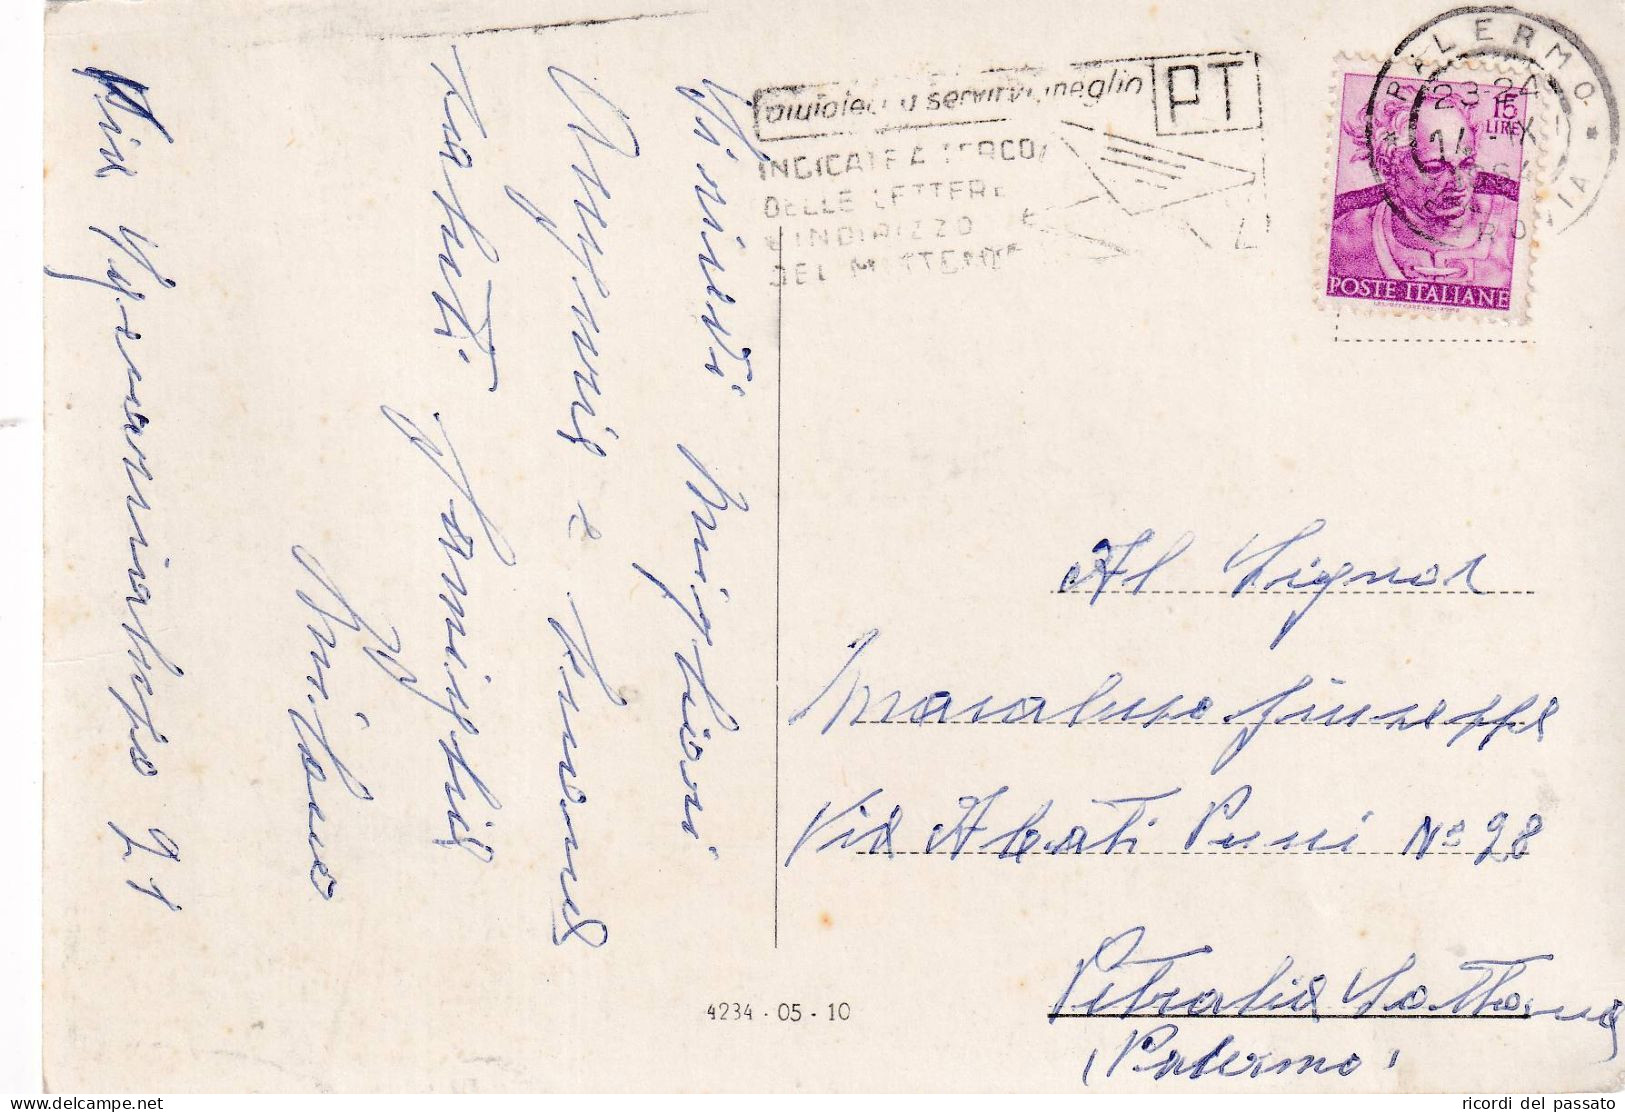 Vivissimi Migliori
Auguri e buone
saluti Famiglia
Via
21
aiutateci a servirvi meglio
PT
INDICATE A TERGO
DELLE LETTERE
L'INDIRIZZO
DEL MITTENTE
PALERMO FERROVIA
23-24
14 - IX
1964
15
LIRE
POSTE ITALIANE
Al Signor
Macaluso Giuseppe
Via Abati Pucci No 28
Petralia Sottana
(Palermo)
4234 - 05 - 10
ricordi del passato